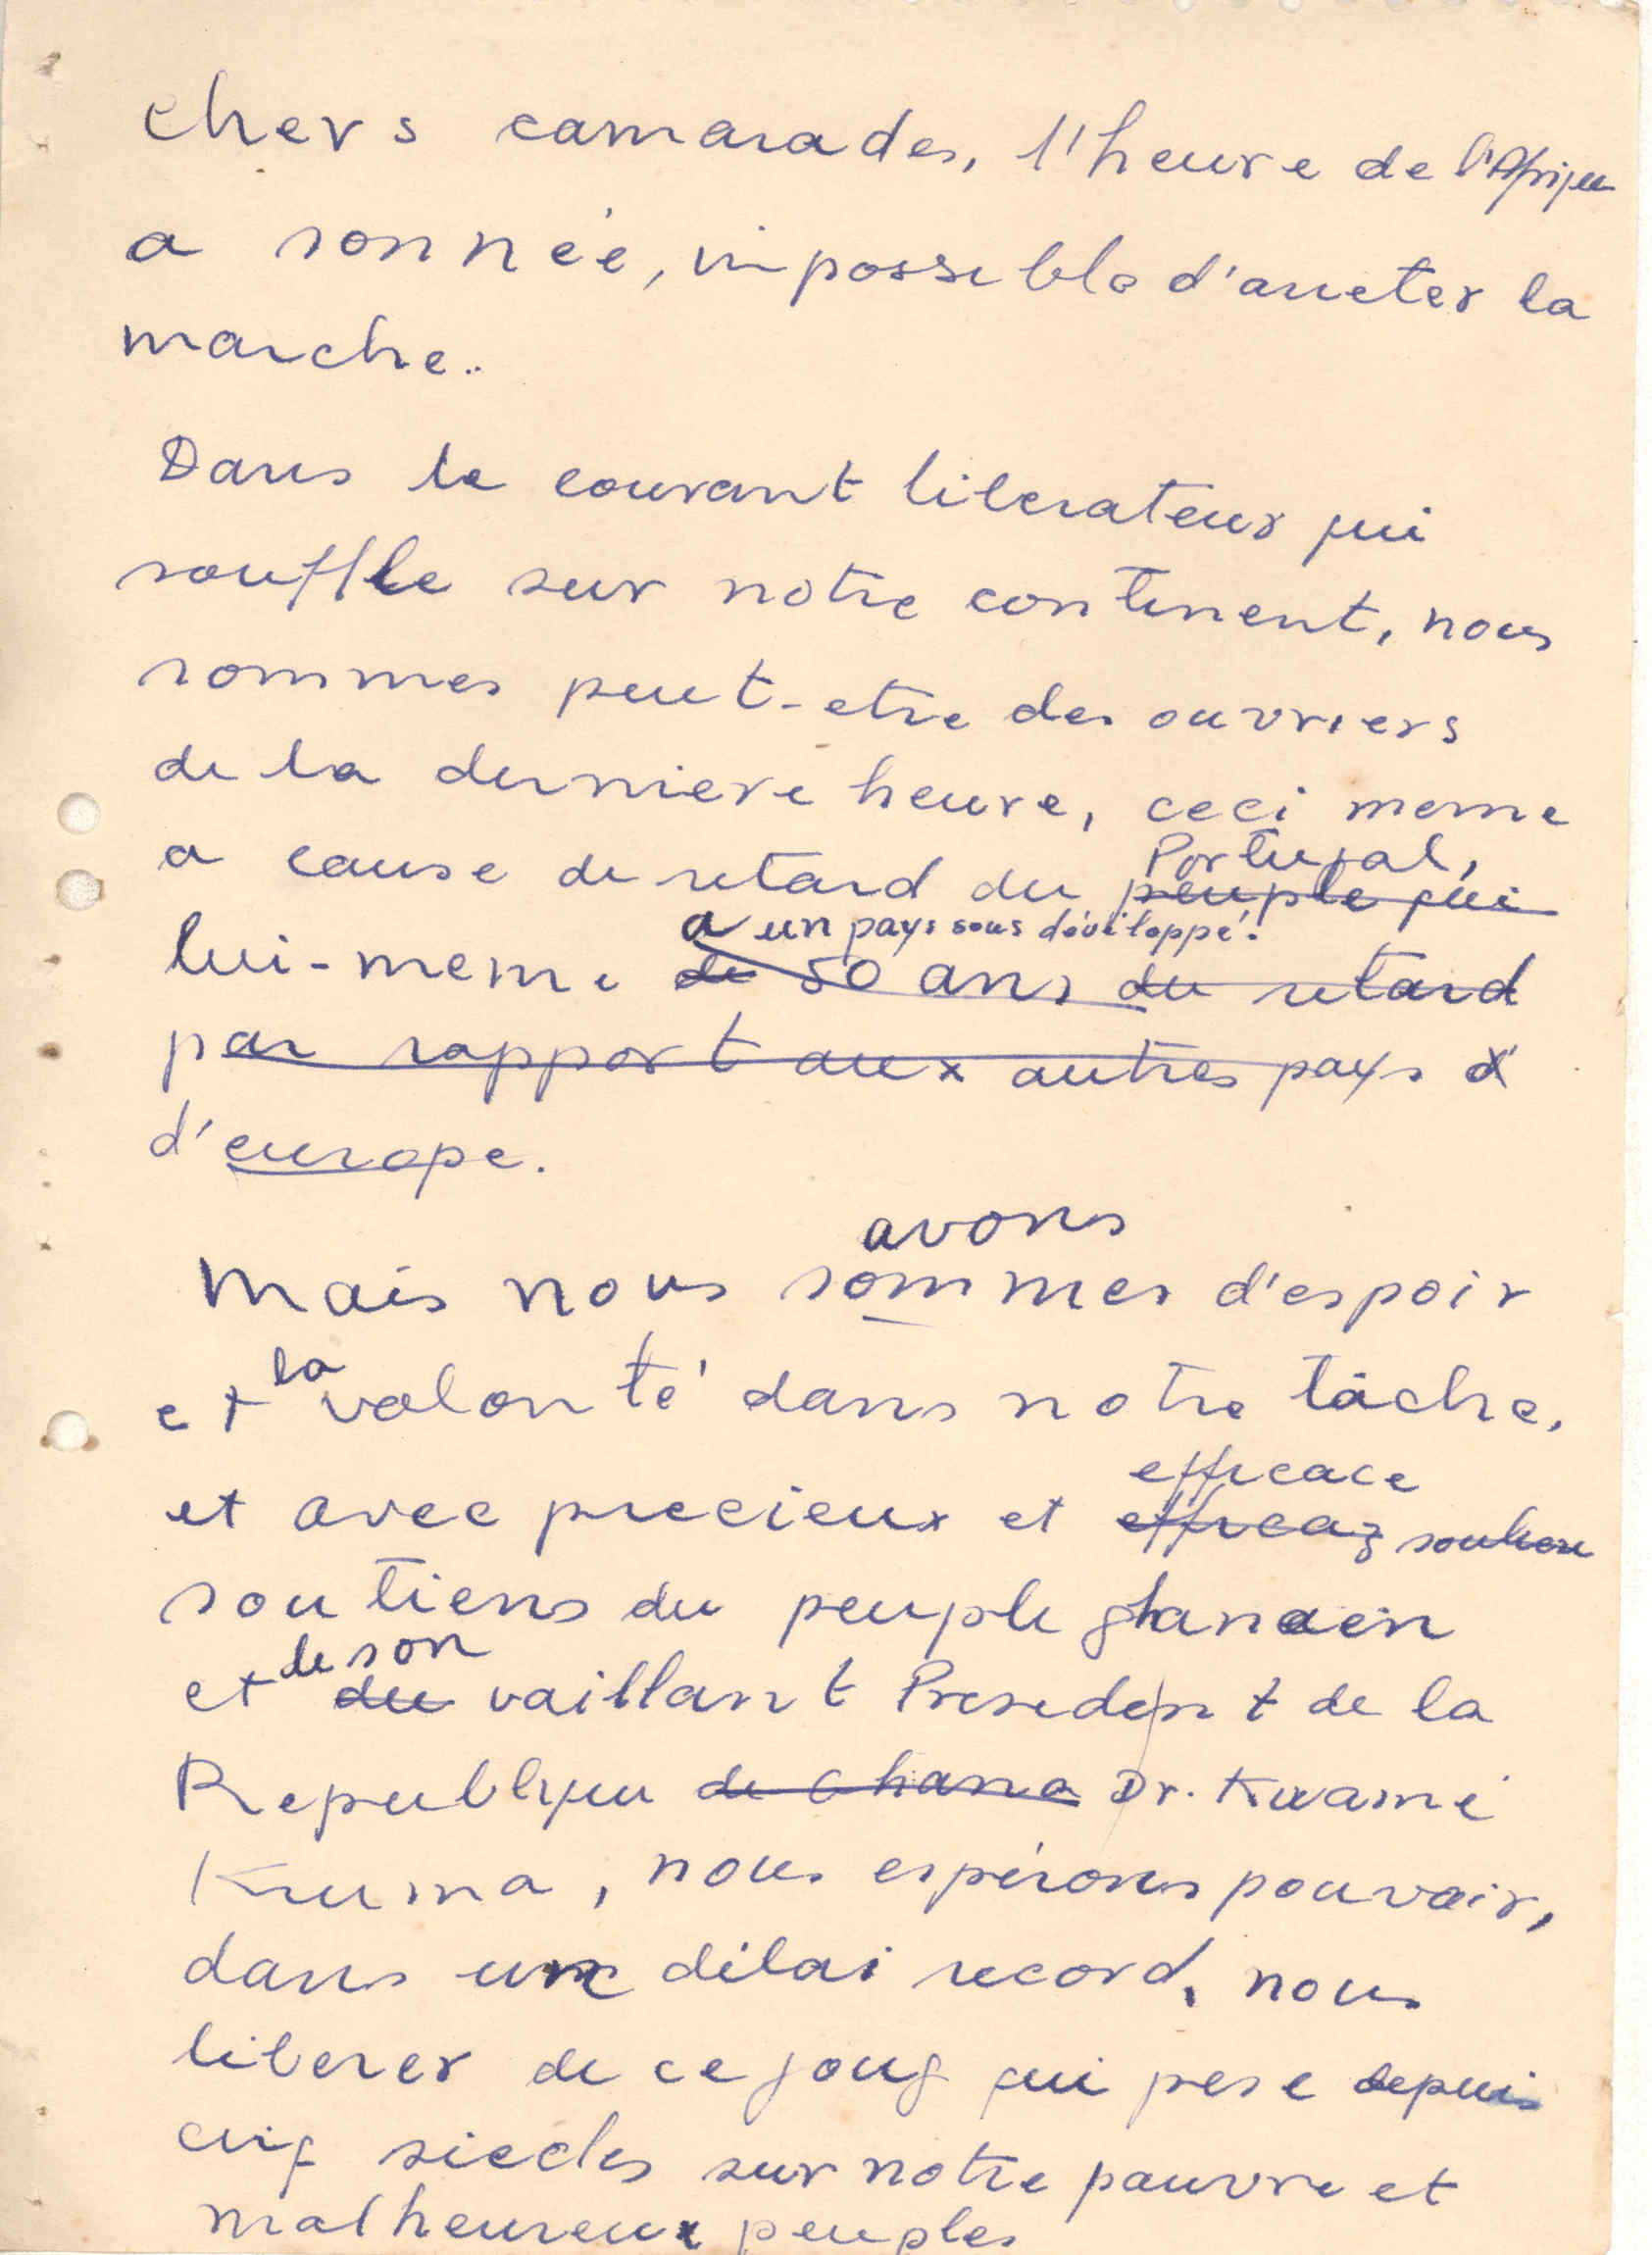 chers camarades, l'heure de l'Afrique
a sonnée, impossible d'arreter la
marche..
Dans le courant liberateur qui
souffle sur notre continent, nous
sommes peut-etre des ouvriers
de la derniere heure, ceci meme
Portugal,
a cause de retard du peuple qui
a un pays sous développé.
lui-meme de 50 ans du retard
par rapport aux autres pays d'
d'europe.
avons
Mais nous sommes d'espoir
la
et volonté dans notre tâche,
efficace
et avec precieux et efficaz soutien
soutiens du peuple ghanaein
de son
et du vaillant President de la
Republique de Ghana Dr. Kwamé
Kruma, nous espérons pouvoir,
dans une délai record, nous
liberer de ce joug qui pese depuis
cinq siecles sur notre pauvre et
malheureux peuples